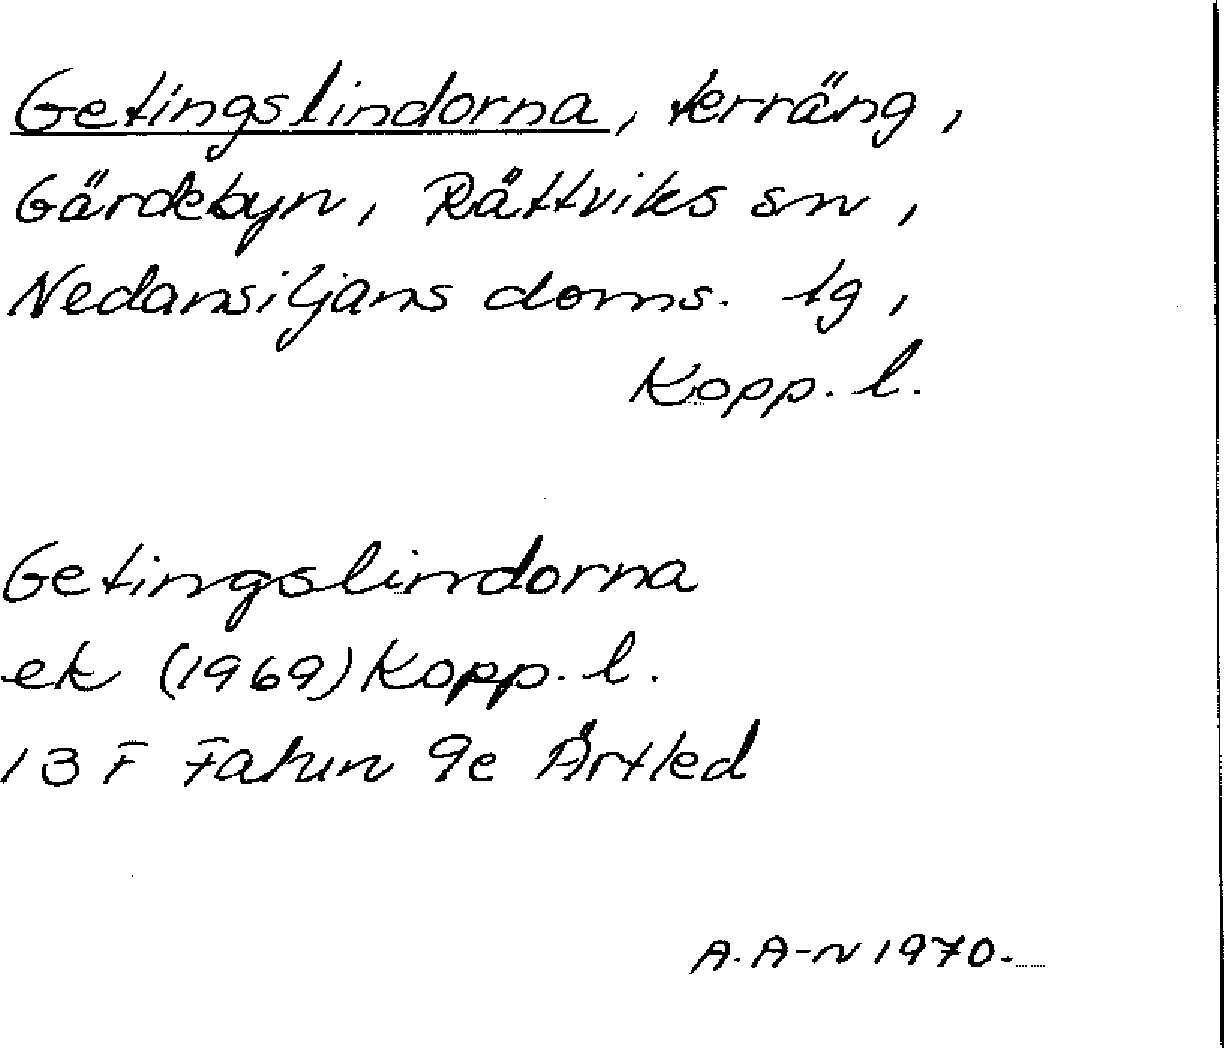 Getingslindorna, terräng,
Gärdebyn, Rättviks sn,
Nedansiljans doms. tg,
Kopp. l.
Getingslindorna
ek (1969) Kopp. l.
13 F Falun 9e Ärtled
A. A-n 1970.